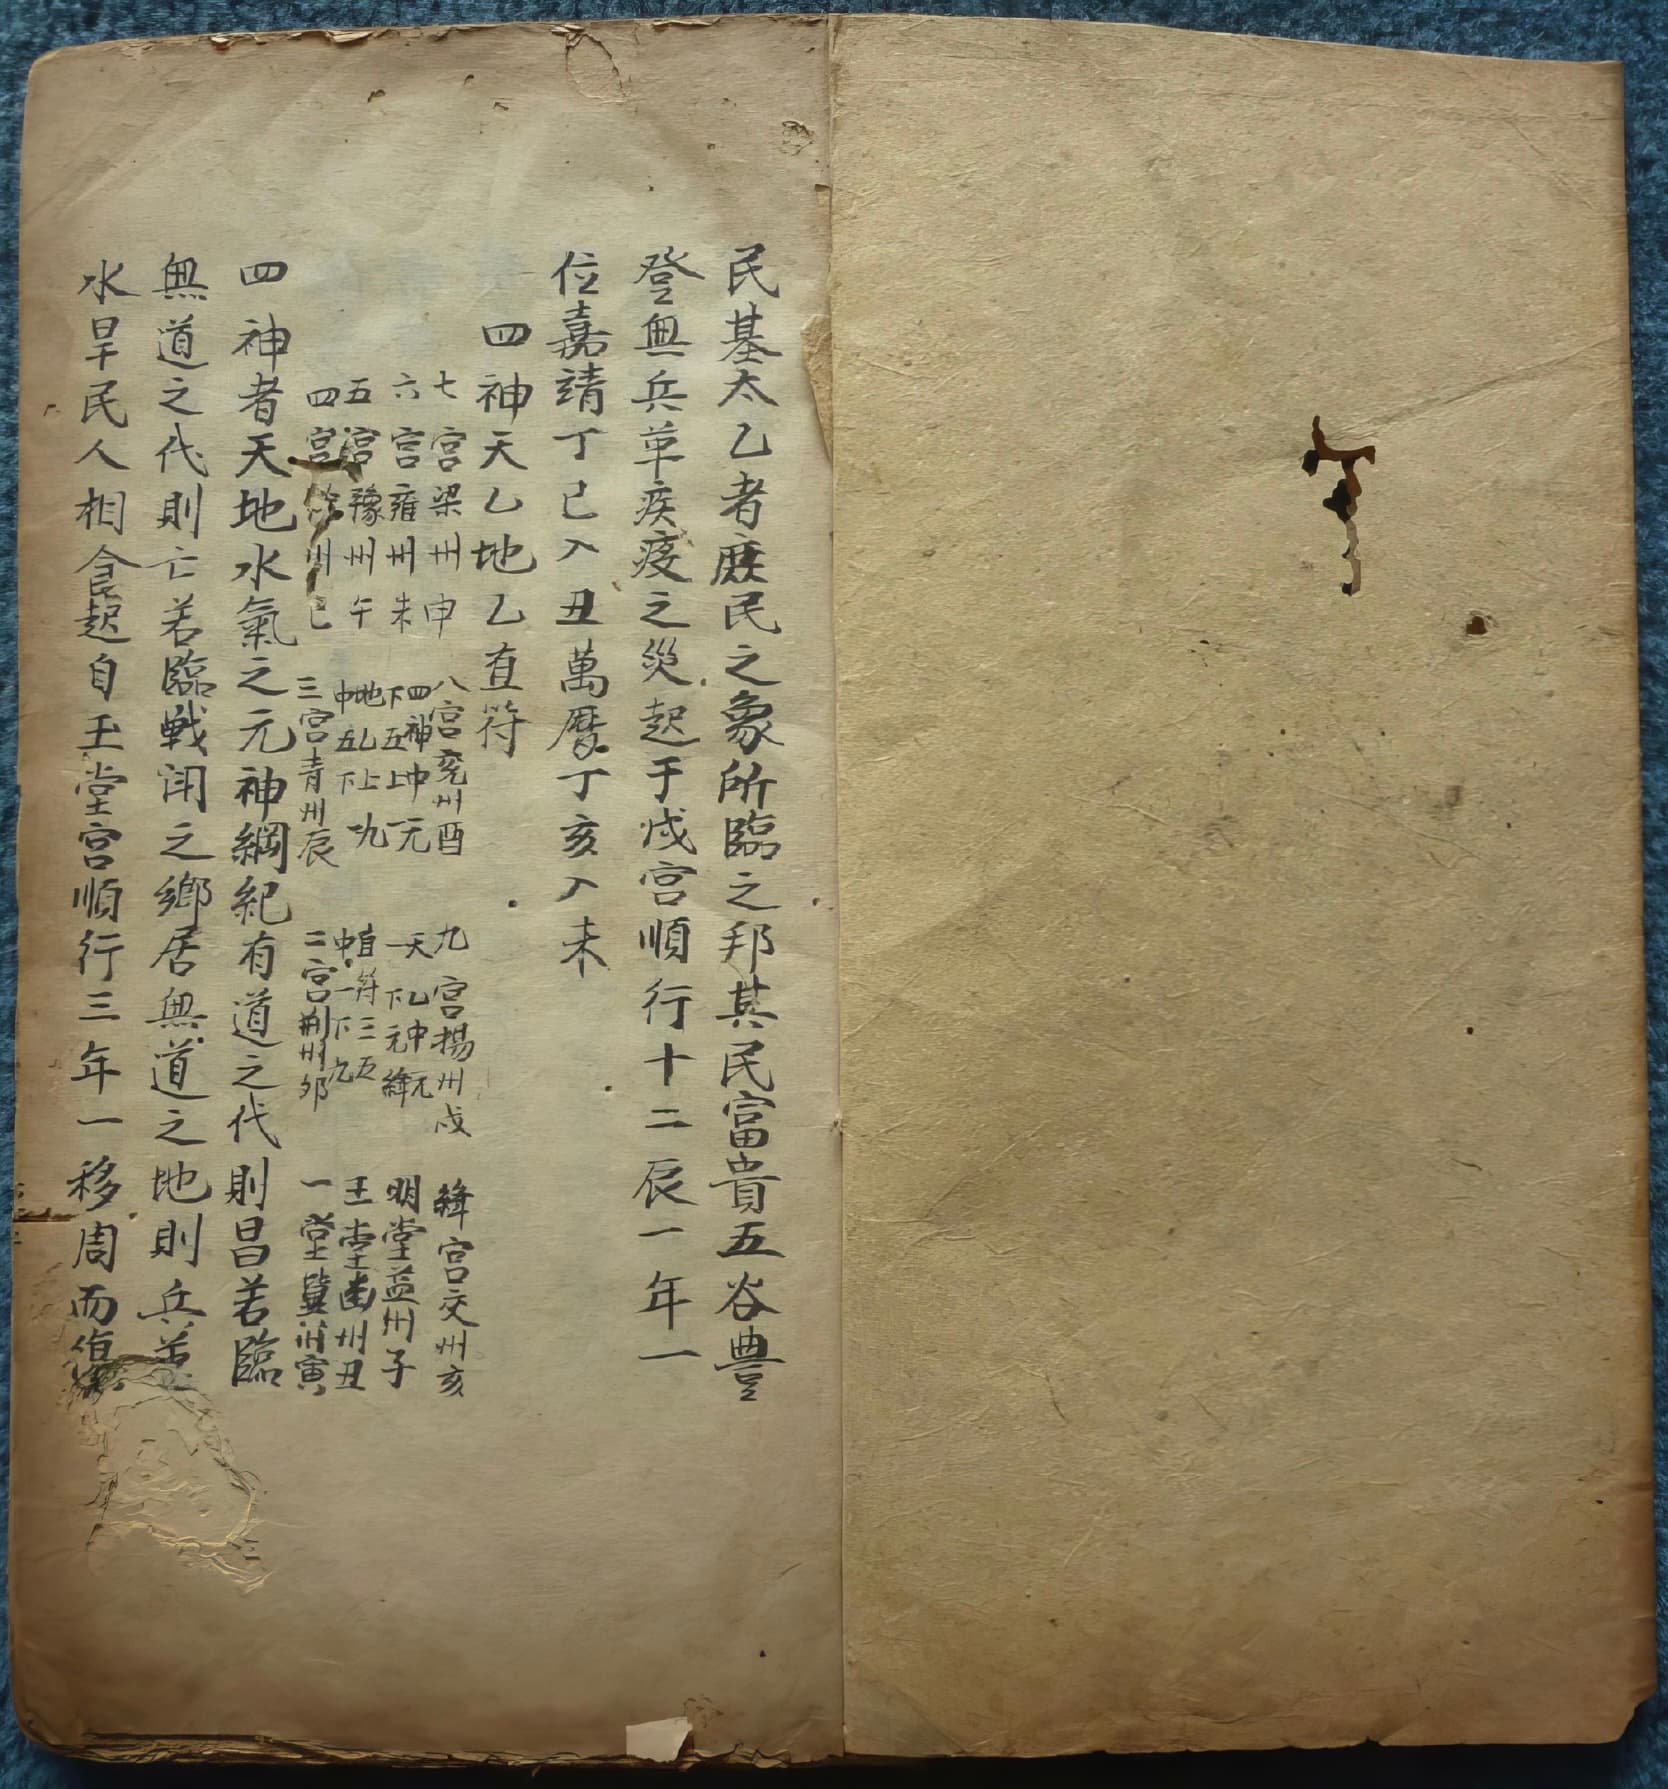 民基太乙者庻民之象所臨之邦其民富貴五谷豊
登無兵革疾疫之災起于戍宫順行十二辰一年一
位嘉靖丁巳入丑萬曆丁亥入未
四神天乙地乙直符
七宫梁州申
八宫兖州酉
九宫揚州戍
絳宫交州亥
六宫雍州未
四神中元
下五上一
天乙中元
一下元絳
明堂益州子
五宫豫州午
地乙上九
中五下一
直符三五
中一下九
玉堂幽州丑
四宫 州巳
三宫青州辰
二宫荆州夘
一堂冀州寅
四神者天地水氣之元神綱紀有道之代則昌若臨
無道之代則亡若臨戦鬥之鄉居無道之地則兵
水旱民人相食起自玉堂宫順行三年一移周而復